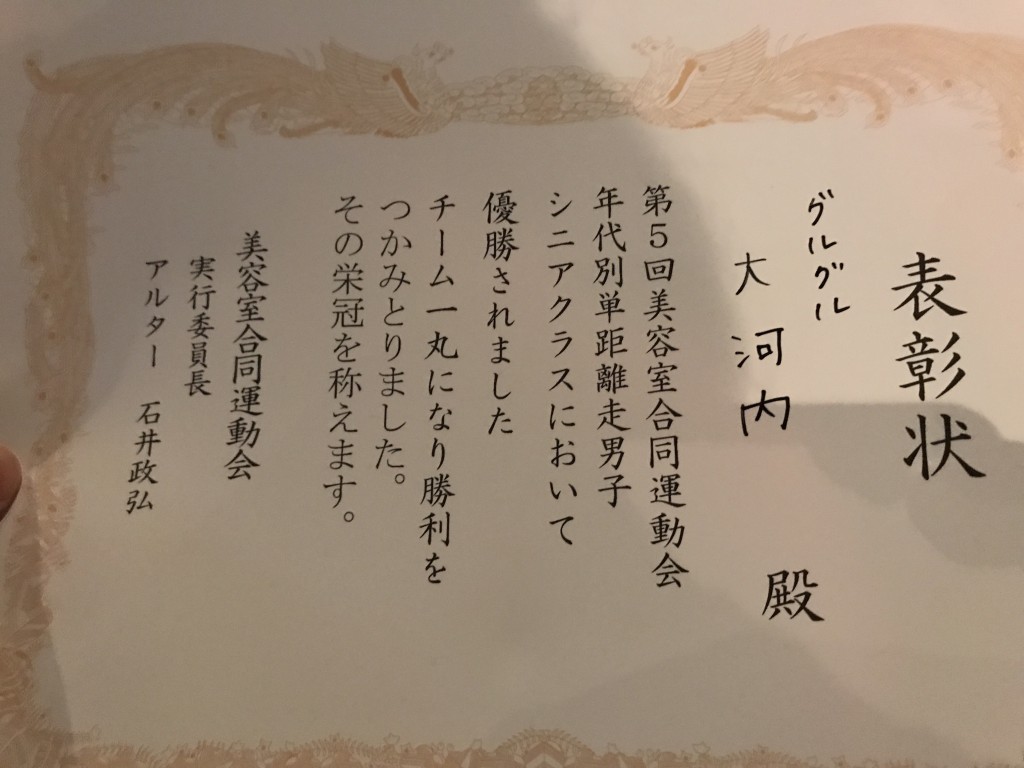 表彰状
グルグル
大河内 殿
第5回美容室合同運動会
年代別単距離走男子
シニアクラスにおいて
優勝されました
チーム一丸になり勝利を
つかみとりました。
その栄冠を称えます。
美容室合同運動会
実行委員長
アルター 石井政弘